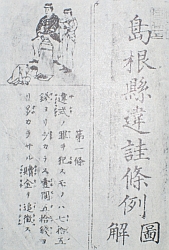 島根縣違註條例
圖解
第一條
違式ノ罪ヲ犯スモノハ七拾五
錢ヨリ少カラス壹圓五拾錢ヨ
リ多カラサル贖金ヲ追徴ス